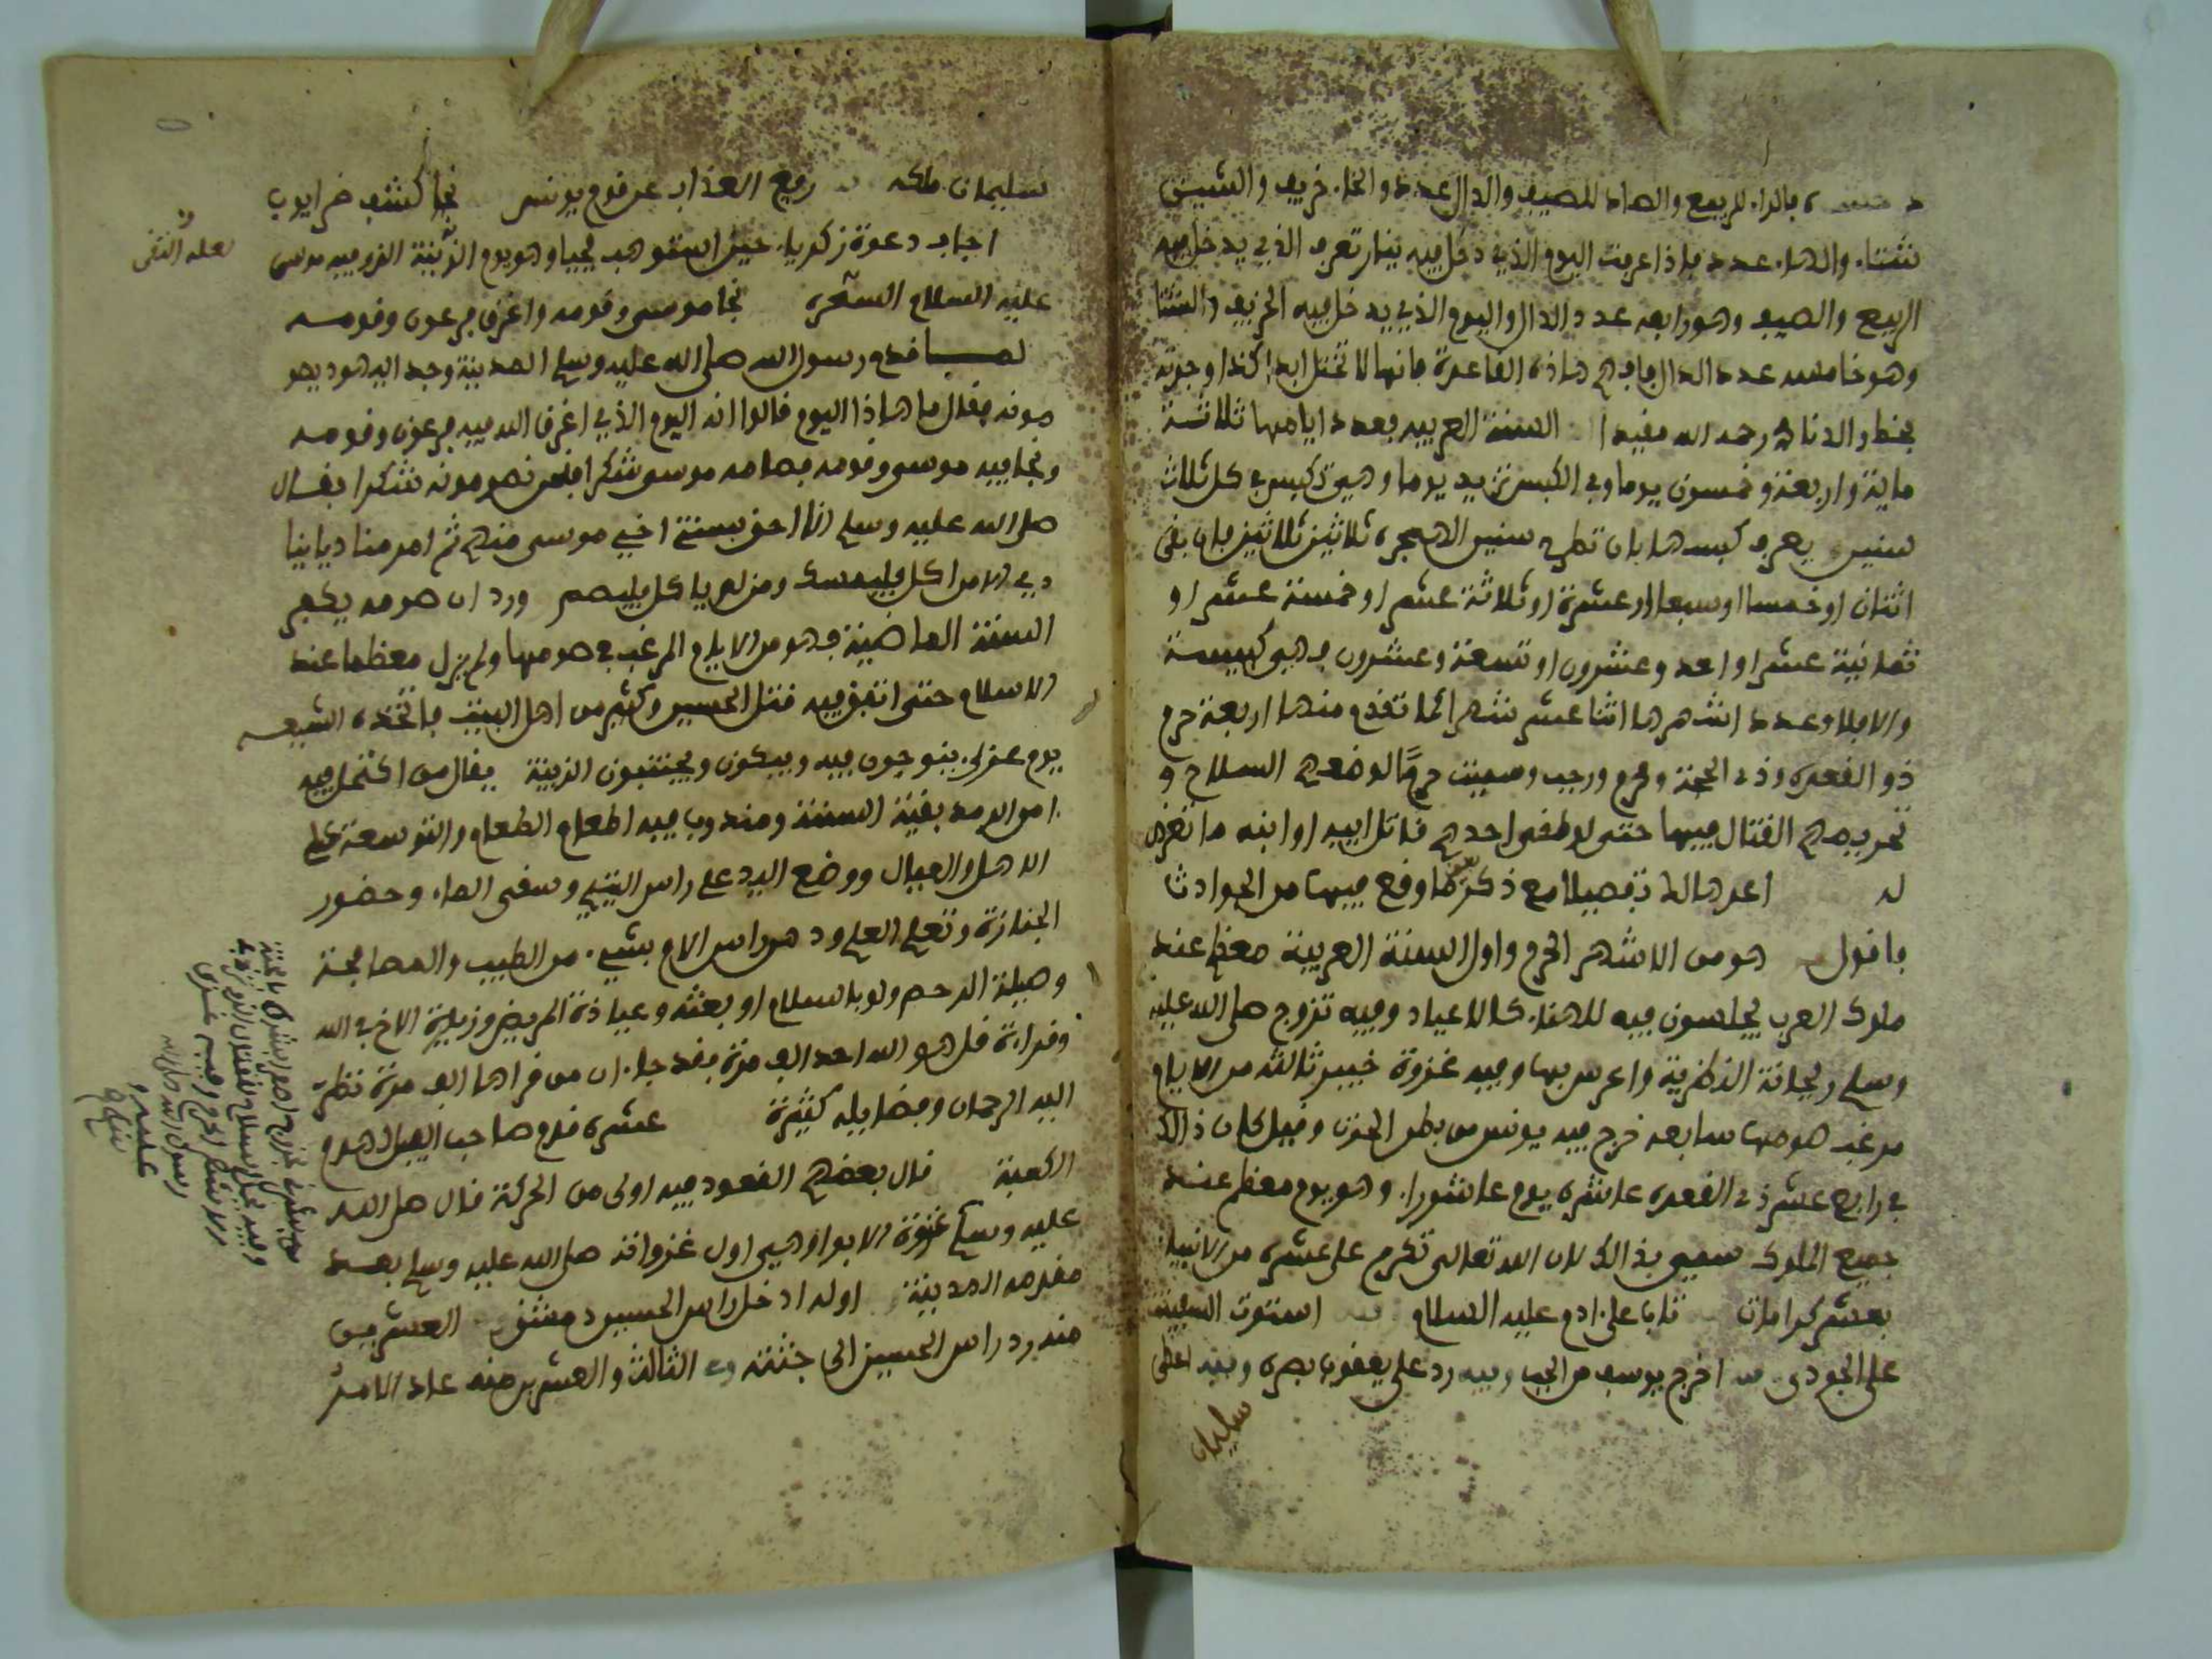 بالراء للربيع والصاد للصيف والدال عدد والخاء خريف والشين
شتاء والهاء عدد فإذا عرفت اليوم الذي دخل فيه ينار تعرف الذي يدخل فيه
الربيع والصيف وهو رابعه عدد الدال واليوم الذي يدخل فيه الخريف والشتا
وهو خامسه عدد الدال فافهم هاذه القاعدة فانها لا تختل ابدا كذا وجدته
بخط والدنا رحمه الله مفيدا السنة العربيه فعدد ايامها ثلاثة
ماية واربعة وخمسون يوما وفي الكبس تزيد يوما وهي تكبس في كل ثلاث
سنين يعرف كبسها بان تطرح سنين الهجره ثلاثين ثلاثين فان بقى
اثنان او خمسا او سبعا او عشرة او ثلاثة عشر او خمسة عشر او
ثمانية عشر او احد وعشرون او تسعة وعشرون فهي كبيسة
والا فلا وعدد اشهرها اثنا عشر شهرا كما تقدم منها اربعة حرم
ذو القعده وذي الحجة ومحرم ورجب وسميت حرمًا لوضعهم السلاح و
تحريمهم القتال فيها حتى لو لقى احدهم قاتل ابيه او ابنه ما تعرض
له اعدها لك تفصيلا مع ذكر ما وقع فيها من الحوادث
فاقول هو من الاشهر الحرم واول السنة العربية معظم عند
ملوك العرب يجلسون فيه للهناء كالاعياد وفيه تزوج صلى الله عليه
وسلم ريحانة النظرية واعرس بها وفيه غزوة خيبر ثالثه من الايام
مرغب صومها سابعه خرج فيه يونس من بطن الحوت وقيل كان ذالك
في رابع عشر ذي القعده عاشره يوم عاشوراء وهو يوم معظم عند
جميع الملوك سمي بذالك لان الله تعالى تكرم على عشره من الانبياء
بعشر كرامات تاب على ادم عليه السلام استوت السفينة
على الجودي اخرج يوسف من الجب وفيه رد على يعقوب بصره وفيه اعطى
سليمان
سليمان ملكه رفع العذاب عن قوم يونس كشف ضر ايوب
اجاب دعوة زكرياء حين استوهب يحيا وهو يوم الزينة الذي فيه موسى
لعله التقى
عليه السلام السحره نجا موسى وقومه واغرق فرعون وقومه
لما قدم رسول الله صلى الله عليه وسلم المدينة وجد اليهود يصو
مونه فقال ما هاذا اليوم قالوا انه اليوم الذي اغرق الله فيه فرعون وقومه
ونجا فيه موسى وقومه فصامه موسى شكرا فنحن نصومونه شكرا فقال
صلى الله عليه وسلم انا احق بسنة اخي موسى منهم ثم امر مناديا ينا
دي الا من اكل فليمسك ومن لم ياكل فليصم ورد ان صومه يكفر
السنة الماضية فهو من الايام المرغب في صومها ولم يزل معظما عند
الاسلام حتى اتفق فيه قتل الحسين وكثير من اهل البيت فاتخذه الشيعه
يوم عزاء ينوحون فيه ويبكون ويجتنبون الزينة يقال من اكتحل فيه
امن الرمد بقية السنة ومندوب فيه اطعام الطعام والتوسعة على
الاهل والعيال ووضع اليد على راس اليتيم وسقى الماء وحضور
الجنازة وتعلم العلم ودهن راس الام بشيء من الطيب والمصافحة
وصلة الرحم ولو بالسلام او بعثه وعيادة المريض وزيارة الاخ في الله
وقراءة قل هو الله احد الف مرة فقد جاء ان من قراها الف مرة نظر
اليه الرحمان وفضايله كثيرة عشره قدم صاحب الفيل لهدم
الكعبة قال بعضهم القعود فيه اولى من الحركة قال صلى الله
عليه وسلم غزوة الابوا وهي اول غزواته صلى الله عليه وسلم بعد
مقدمه المدينة اوله ادخل راس الحسين دمشق العشرين
منه رد راس الحسين الى جثته وفي الثالث والعشرين منه
رسول الله صلى الله
عليه و
سلم